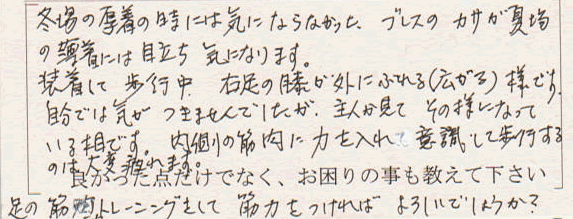 冬場の厚着の時には気にならなかった、ブレスのカサが夏場
の薄着には目立ち気になります。
装着して歩行中、右足の膝が外にぶれる(広がる)様です。
自分では気がつきませんでしたが、主人が見てその様になって
いる相です。内側の筋肉に力を入れて意識して歩行する
のは大変疲れます。
良かった点だけでなく、お困りの事も教えて下さい
足の筋肉トレーニングをして筋力をつければよろしいでしょうか?